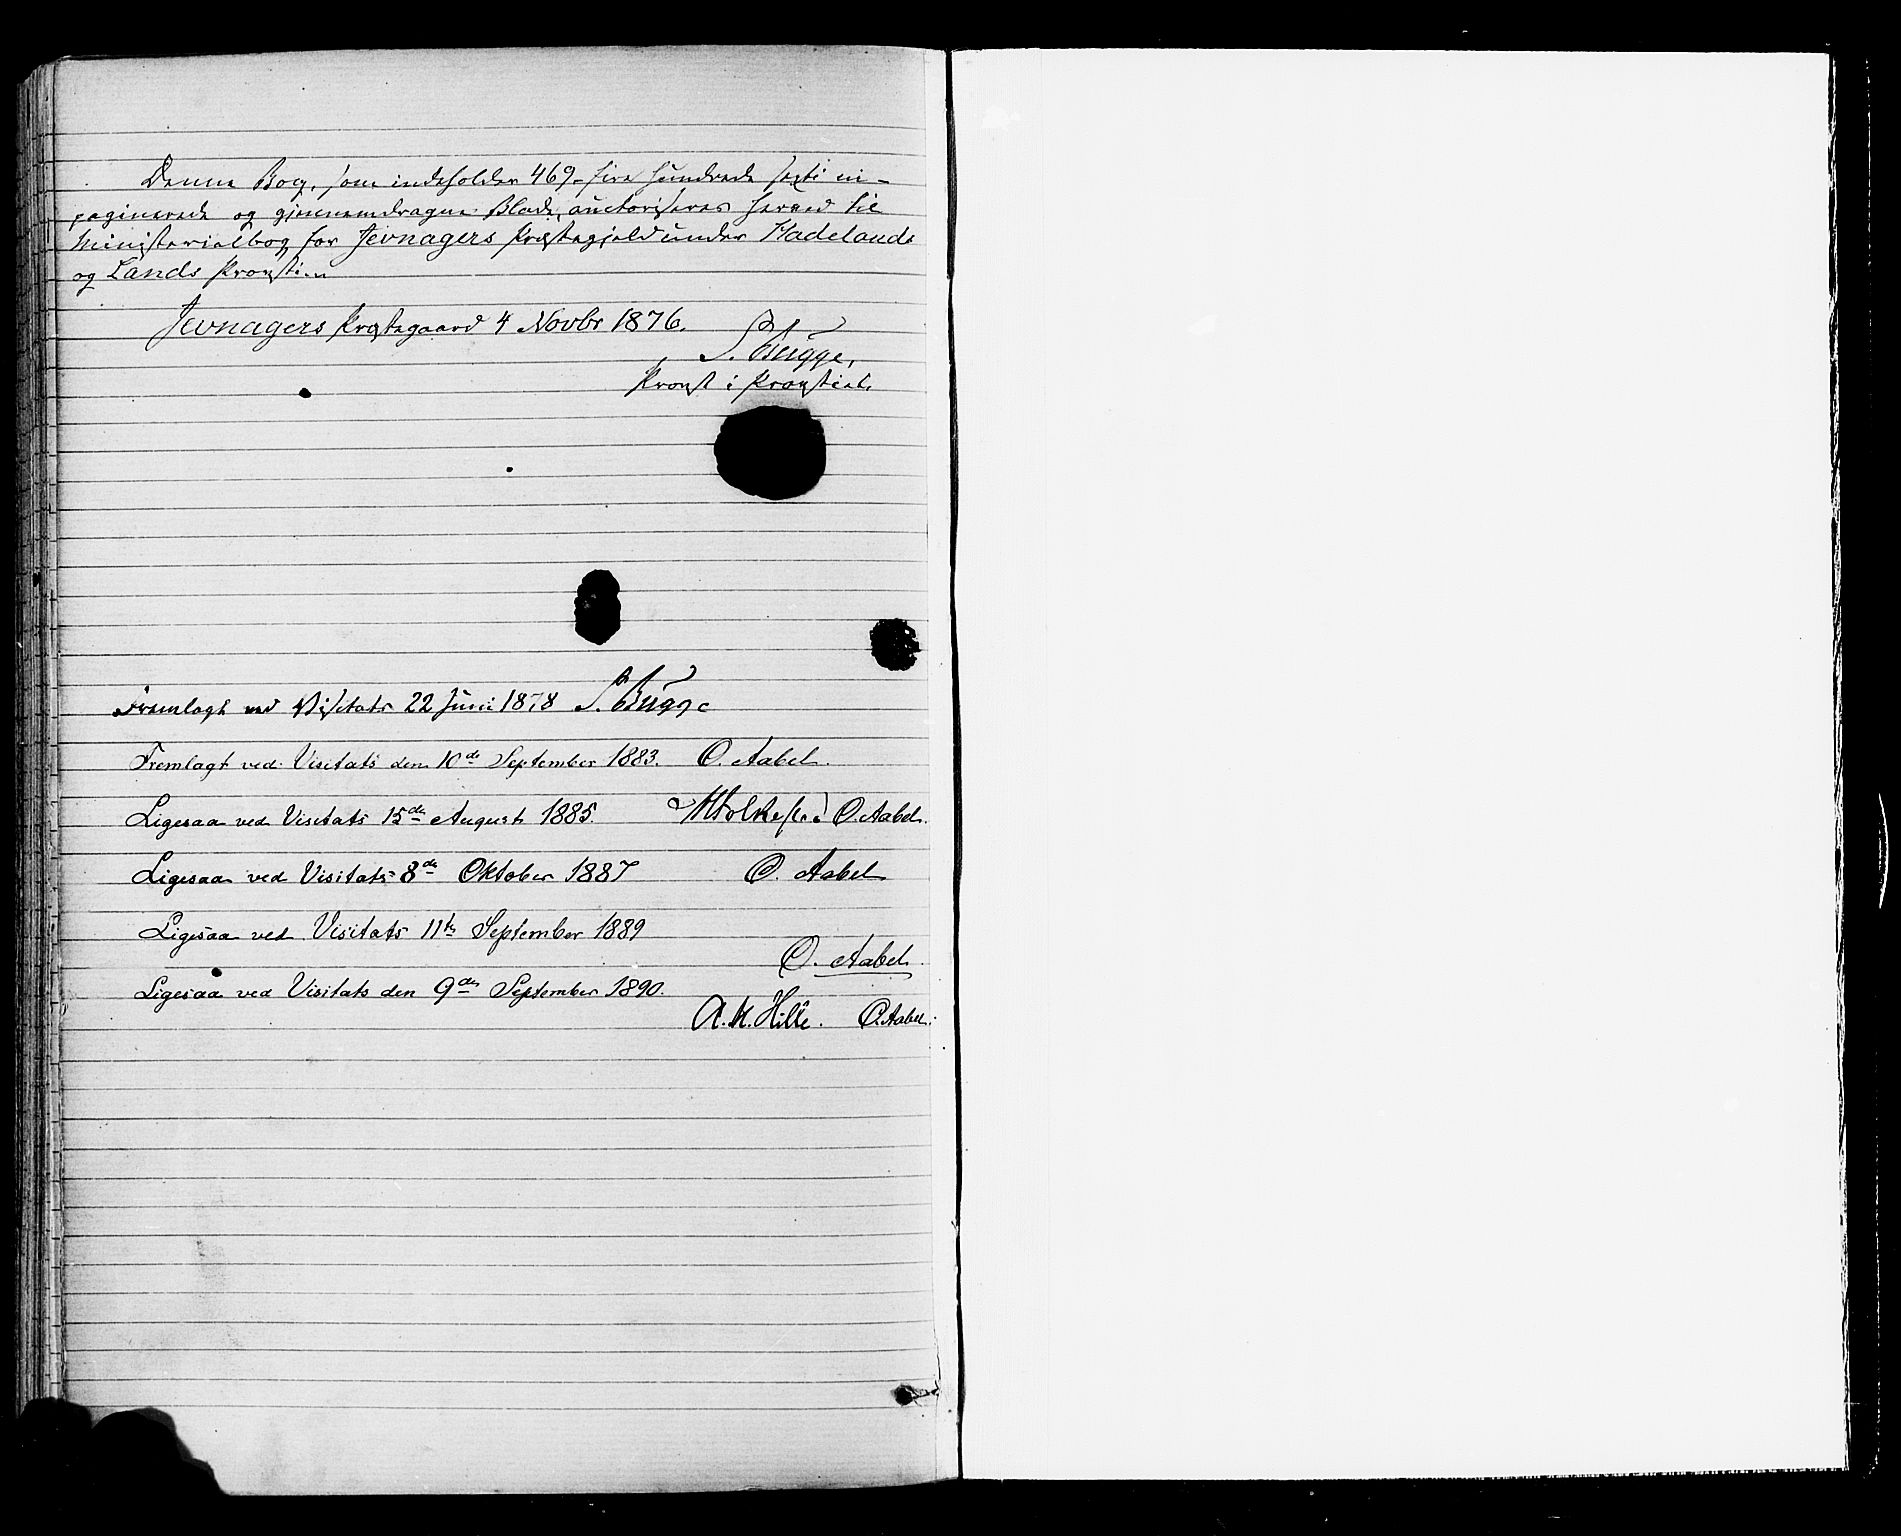 Denne Bog, som indeholder 469 - fire hundrede sexti ni -
paginerede og gjennemdragne Blade, auctoriseres herved til
Ministerialbog for Jevnagers Præstegjeld under Hadelands
og Lands Provsti.
Jevnagers Præstegaard 4 Novbr 1876.
S. Bugge,
Provst i Provstiet.
Fremlagt ved Visitats 22 Juni 1878 S. Bugge
Fremlagt ved Visitats den 10de September 1883. O. Aabel.
Ligesaa ved Visitats 15de August 1885. O. Aabel.
Ligesaa ved Visitats 8de Oktober 1887 O. Aabel
Ligesaa ved Visitats 11te September 1889
O. Aabel.
Ligesaa ved Visitats den 9de September 1890.
A. M. Hille. O. Aabel.